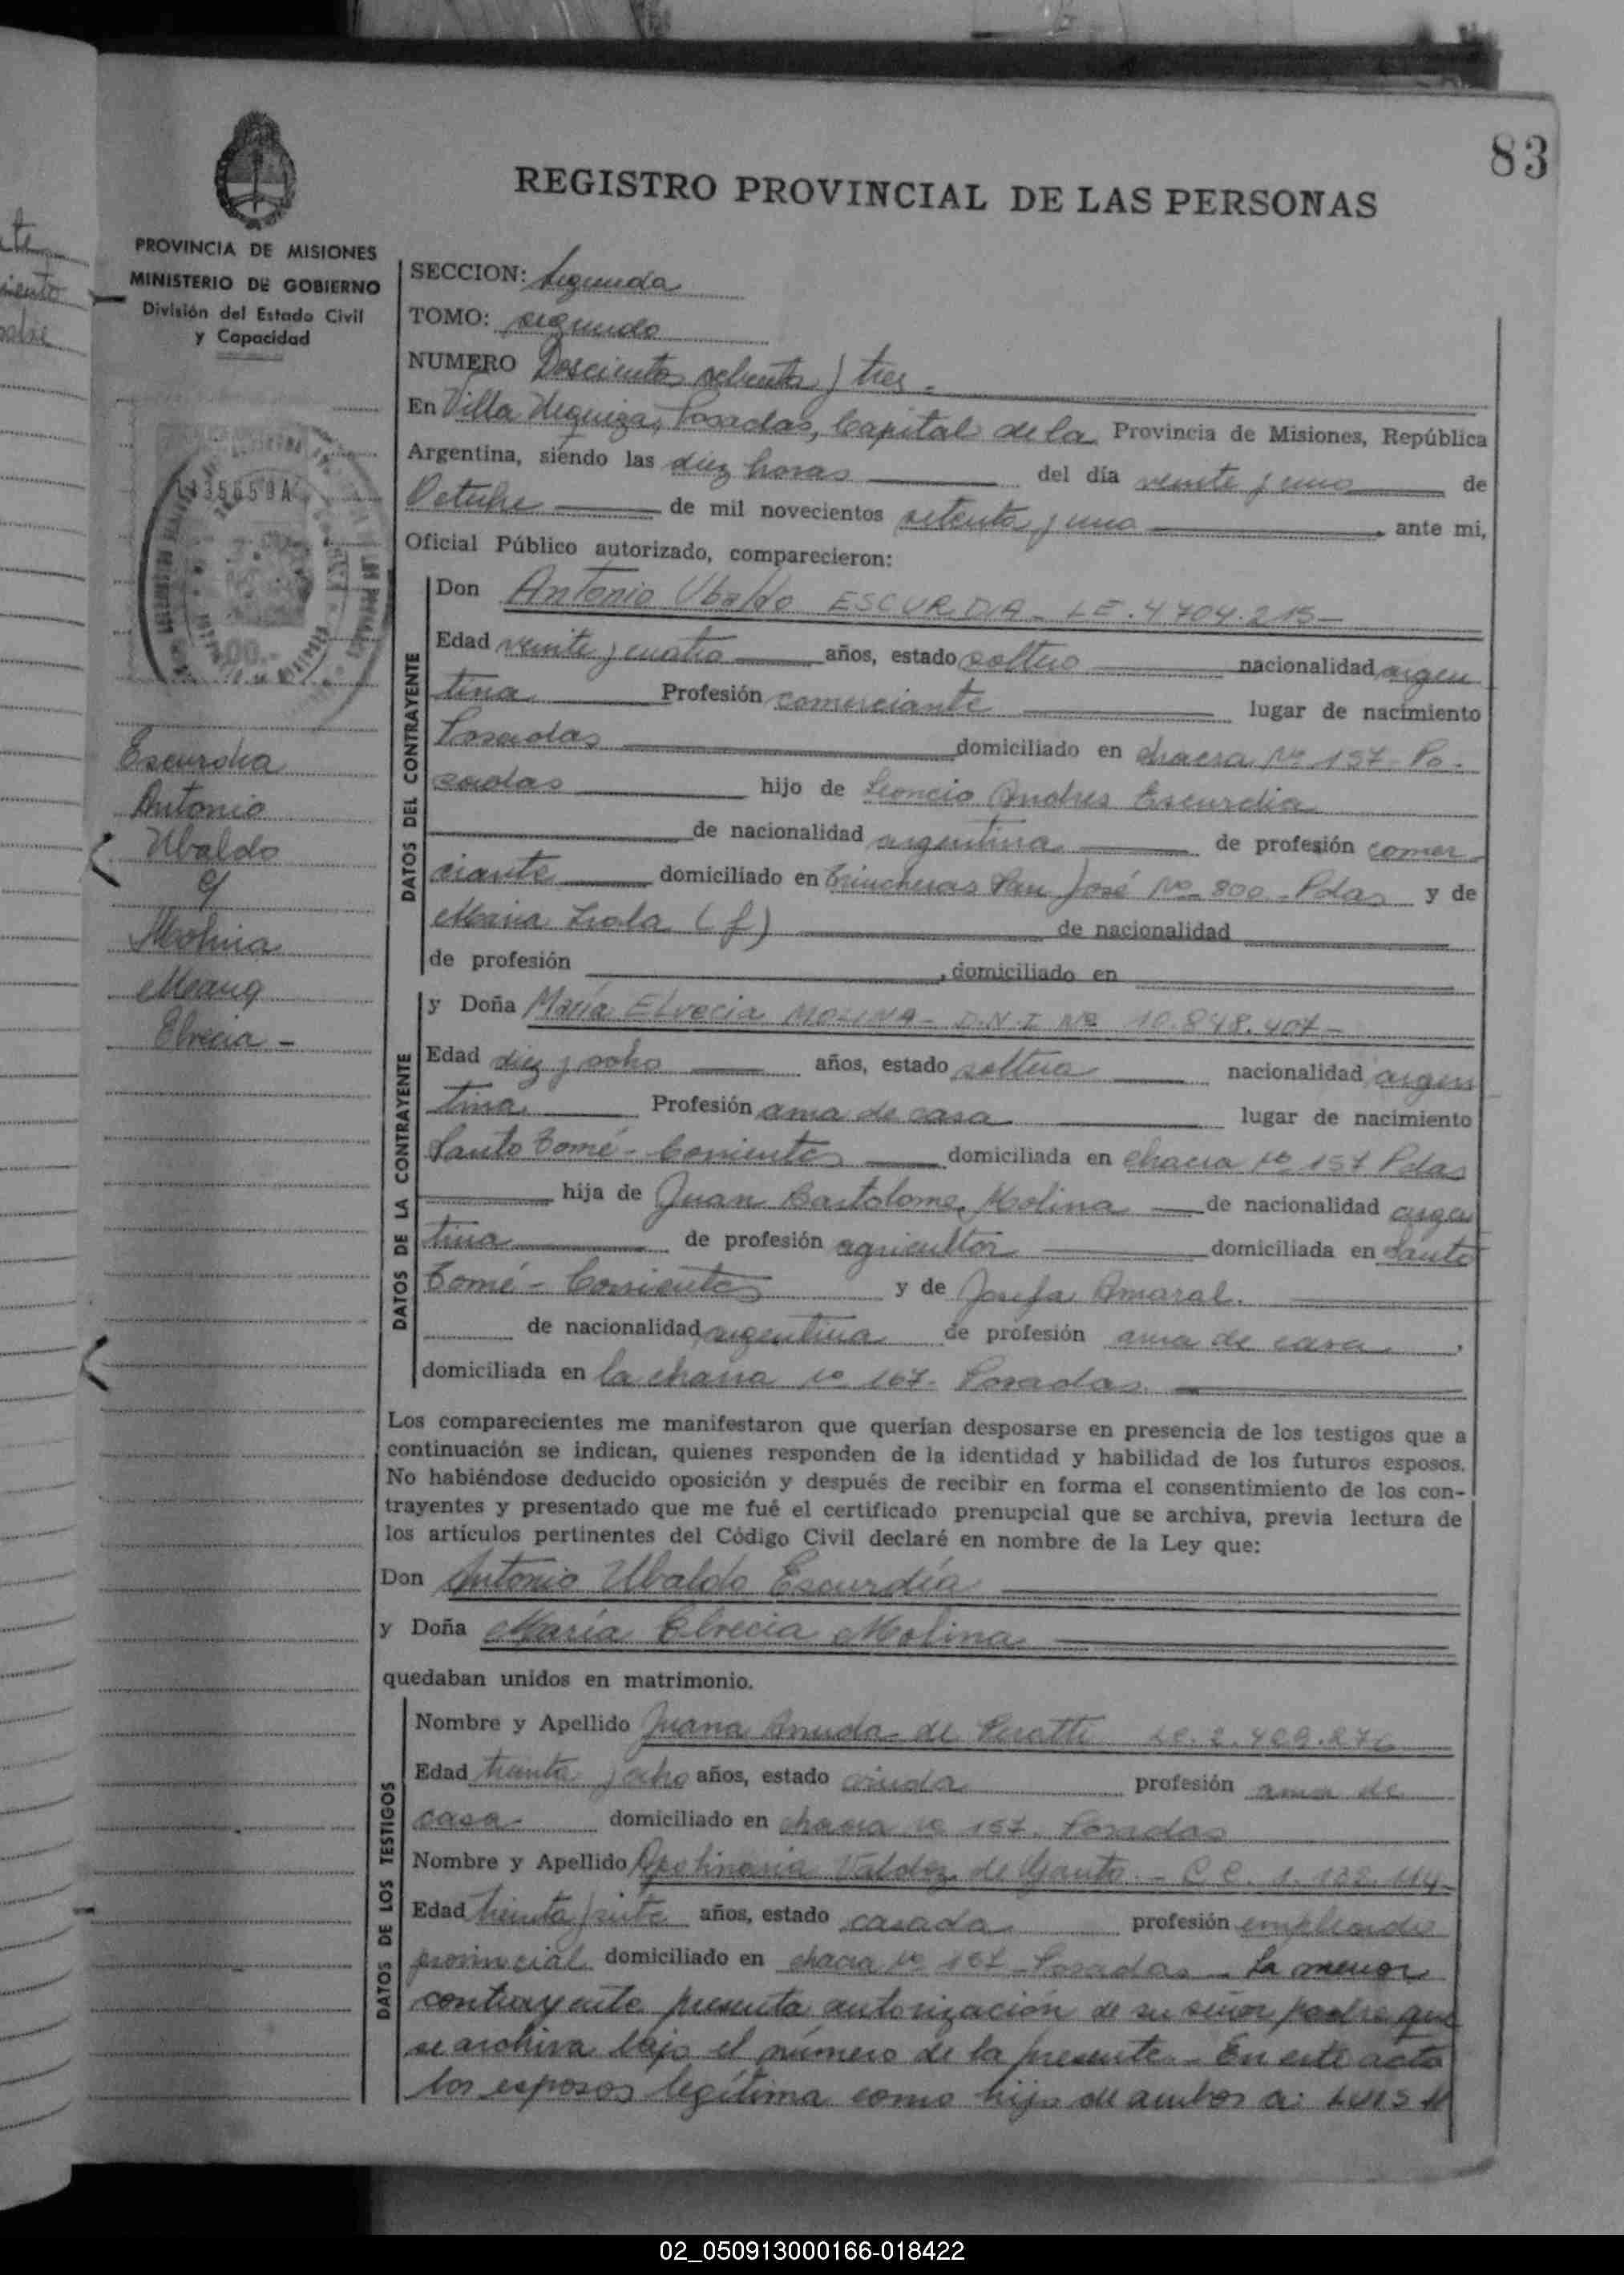 83
REGISTRO PROVINCIAL DE LAS PERSONAS
PROVINCIA DE MISIONES
MINISTERIO DE GOBIERNO
División del Estado Civil
y Capacidad
Escurdia
Antonio
Ubaldo
c/
Molina
María
Elvecia -
SECCION: Segunda
TOMO: segundo
NUMERO Doscientos setenta y tres -
En Villa Urquiza, Posadas, Capital de la Provincia de Misiones, República
Argentina, siendo las diez horas del día veinte y uno de
Octubre de mil novecientos setenta y uno ante mi,
Oficial Público autorizado, comparecieron:
DATOS DEL CONTRAYENTE
Don Antonio Ubaldo ESCURDIA - LE. 4.704.215 -
Edad veinte y cuatro años, estado soltero nacionalidad argen
tina Profesión comerciante lugar de nacimiento
Posadas domiciliado en chacra Nº 157 - Po-
sadas hijo de Leoncio Andres Escurdia
de nacionalidad argentina de profesión comer
ciante domiciliado en Trincheras San José Nº 800 - Pdas y de
María (f) de nacionalidad
de profesión , domiciliado en
DATOS DE LA CONTRAYENTE
y Doña María Elvecia MOLINA - D.N.I. Nº 10.848.407 -
Edad diez y ocho años, estado soltera nacionalidad argen
tina Profesión ama de casa lugar de nacimiento
Santo Tomé - Corrientes domiciliada en chacra Nº 157 Pdas
hija de Juan Bartolome Molina de nacionalidad argen
tina de profesión agricultor domiciliada en Santo
Tomé - Corrientes y de Josefa Amaral.
de nacionalidad argentina de profesión ama de casa ,
domiciliada en la chacra Nº 167 - Posadas
Los comparecientes me manifestaron que querían desposarse en presencia de los testigos que a
continuación se indican, quienes responden de la identidad y habilidad de los futuros esposos.
No habiéndose deducido oposición y después de recibir en forma el consentimiento de los con-
trayentes y presentado que me fué el certificado prenupcial que se archiva, previa lectura de
los artículos pertinentes del Código Civil declaré en nombre de la Ley que:
Don Antonio Ubaldo Escurdía
y Doña María Elvecia Molina
quedaban unidos en matrimonio.
DATOS DE LOS TESTIGOS
Nombre y Apellido Juana de
Edad treinta y ocho años, estado viuda profesión ama de
casa domiciliado en chacra Nº 157 - Posadas
Nombre y Apellido Apolinaria Valdez de - C.C. 1.122.114 -
Edad treinta y siete años, estado casada profesión empleada
provincial domiciliado en chacra Nº 167 - Posadas - La menor
contrayente presenta autorización de su señor padre que
se archiva bajo el número de la presente - En este acto
los esposos legítima como hijo de ambos a: Luis
02_050913000166-018422